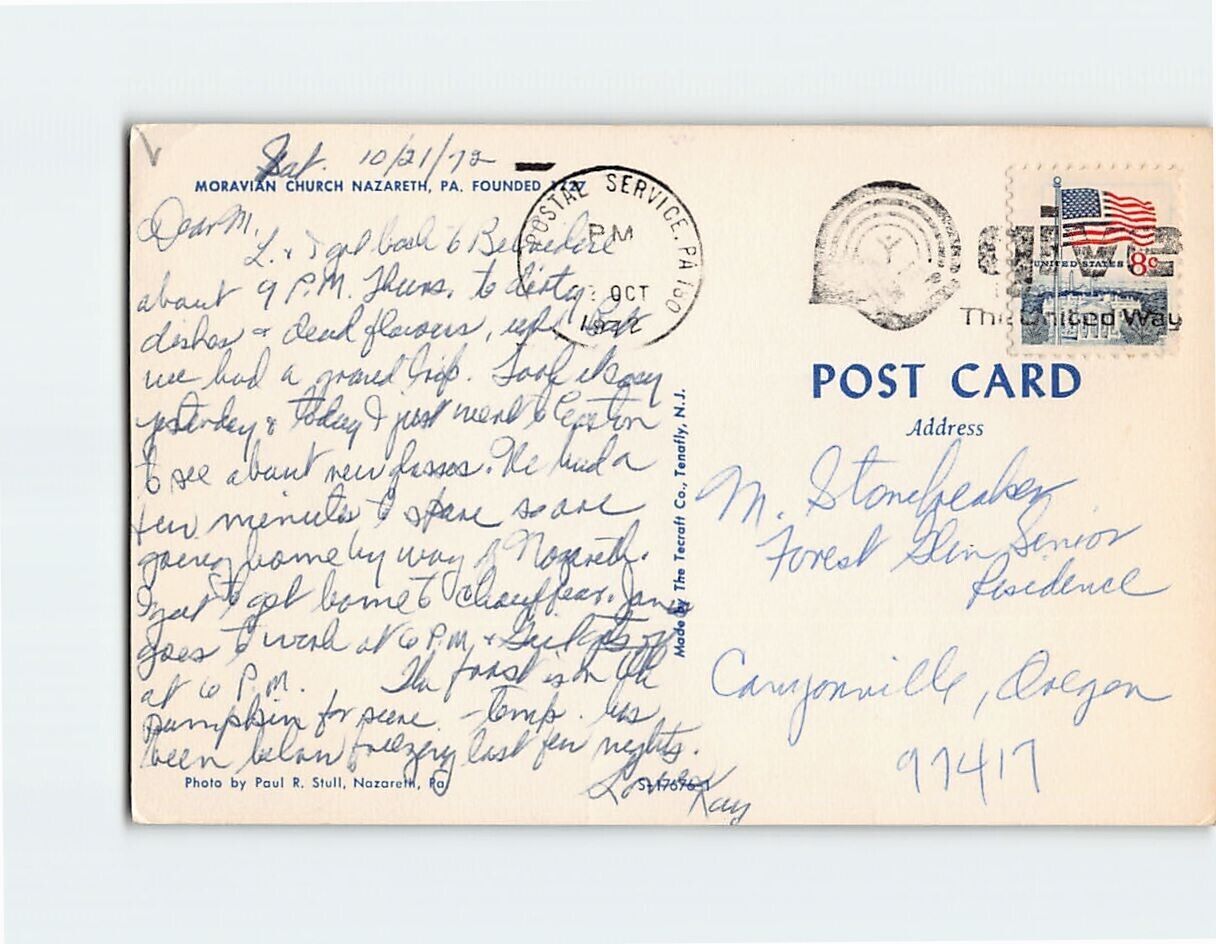 Sat. 10/21/72
MORAVIAN CHURCH NAZARETH, PA. FOUNDED
Dear M,
L. & I got back to Belvidere
about 9 P.M. Thurs. to dirty
dishes & dead flowers, yep, But
we had a grand trip. Took it easy
yesterday & today I just went to Easton
to see about new glasses. We had a
few minutes to spare so are
going home by way of Nazareth.
Must get home to chauffear. Janis
goes to work at 6 P.M. & gets off
at 10 P.M. The frost is on the
pumpkin for sure - temp. has
been below freezing last few nights.
Love Kay
Photo by Paul R. Stull, Nazareth, Pa
S-17676-1
Made by The Tecraft Co., Tenafly, N.J.
POSTAL SERVICE, PA 180
PM
OCT
1972
GIVE
The United Way
UNITED STATES 8c
POST CARD
Address
M. Stonebreaker
Forest Glen Senior
Residence
Canyonville, Oregon
97417